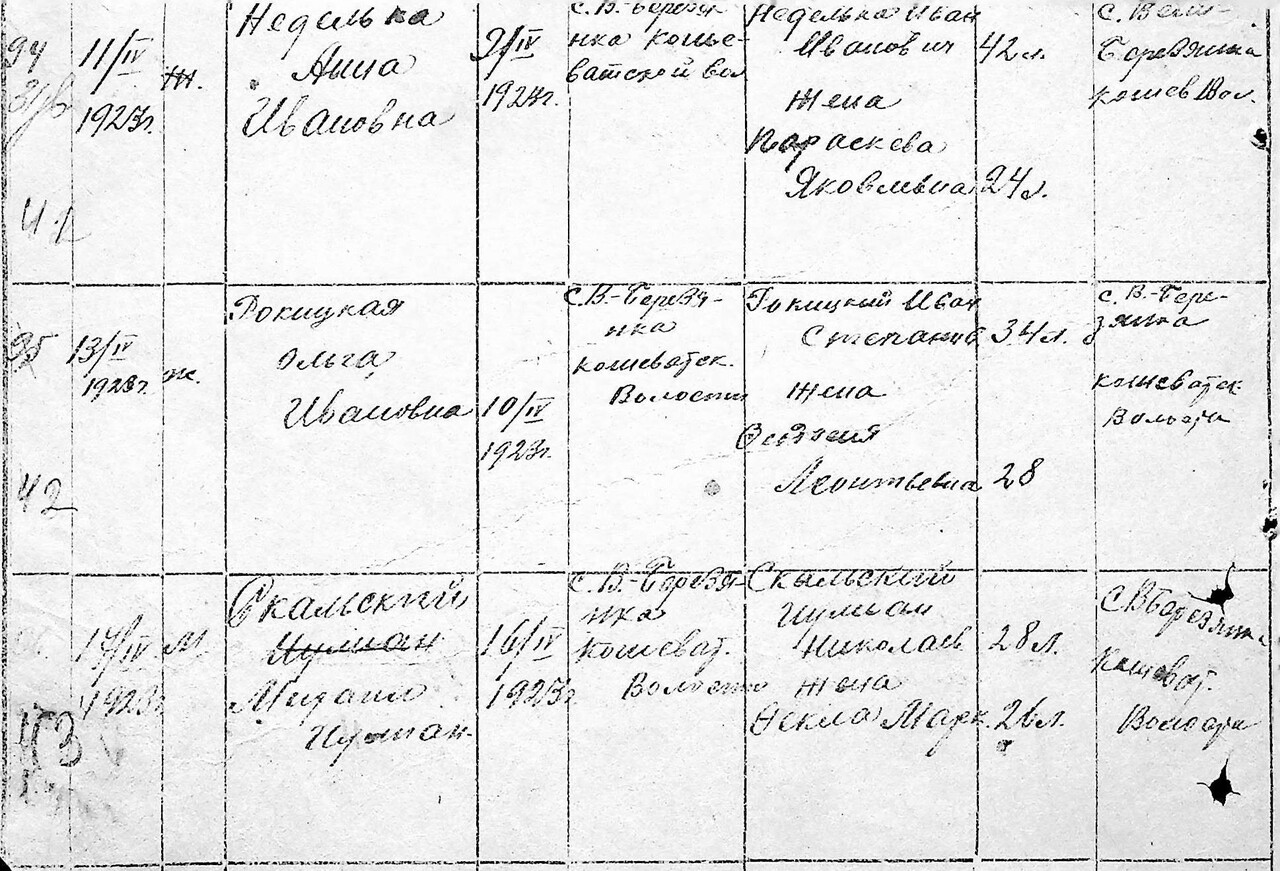 94
11/IV
1923г.
ж.
Неделька
Анна
Ивановна
9/IV
1923г.
с. В. Березя-
нка Коше-
ватской вол
Неделька Иван
Иванович
42л.
жена
Параскева
Яковлевна
24л.
с. Вели-
Березянка
кошев Вол.
41
95
13/IV
1923г.
ж.
Рокицкая
Ольга
Ивановна
10/IV
1923г.
с. В.-Березя-
нка
кошеватск.
Волости
Рокицкий Иван
Степанов
34л.
жена
Феодосия
Леонтьевна
28
с. В.-Бере-
зянка
кошеватск
Волости
42
17/IV
1923г
м
Скальский
Иулиан
Михаил
Иулиан.
16/IV
1923г.
с. В.-Березя-
нка
Кошеват.
Волости
Скальский
Иулиан
Николаев
28л.
жена
Фекла Марк.
26л.
с. В Березянка
Кошеват.
Волости
43